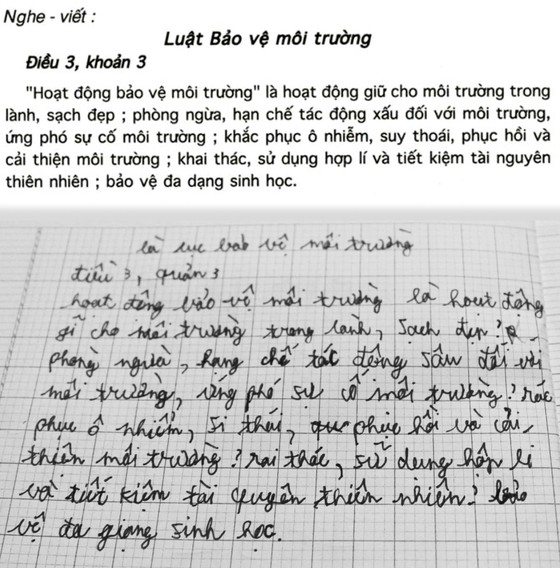 Nghe - viết :
Luật Bảo vệ môi trường
Điều 3, khoản 3
"Hoạt động bảo vệ môi trường" là hoạt động giữ cho môi trường trong
lành, sạch đẹp ; phòng ngừa, hạn chế tác động xấu đối với môi trường,
ứng phó sự cố môi trường ; khắc phục ô nhiễm, suy thoái, phục hồi và
cải thiện môi trường ; khai thác, sử dụng hợp lí và tiết kiệm tài nguyên
thiên nhiên ; bảo vệ đa dạng sinh học.
là lục bab vệ mối trường
điều 3, quản 3
hoạt động bảo vệ mối trường là hoạt động
gĩ cho mối trường trong lành, sạch đẹn ?
phòng ngừa, hạng chế tác động sâu đối với
mối trường, ứng phó sự cố mối trường ? rác
phục ô nhiễm, si thái, phục hồi và cải
thiên mối trường ? rai thác, sử dụng hộp li
và tiết kiệm tài quyên thiên nhiên ? bảo
vệ đa giạng sinh học.